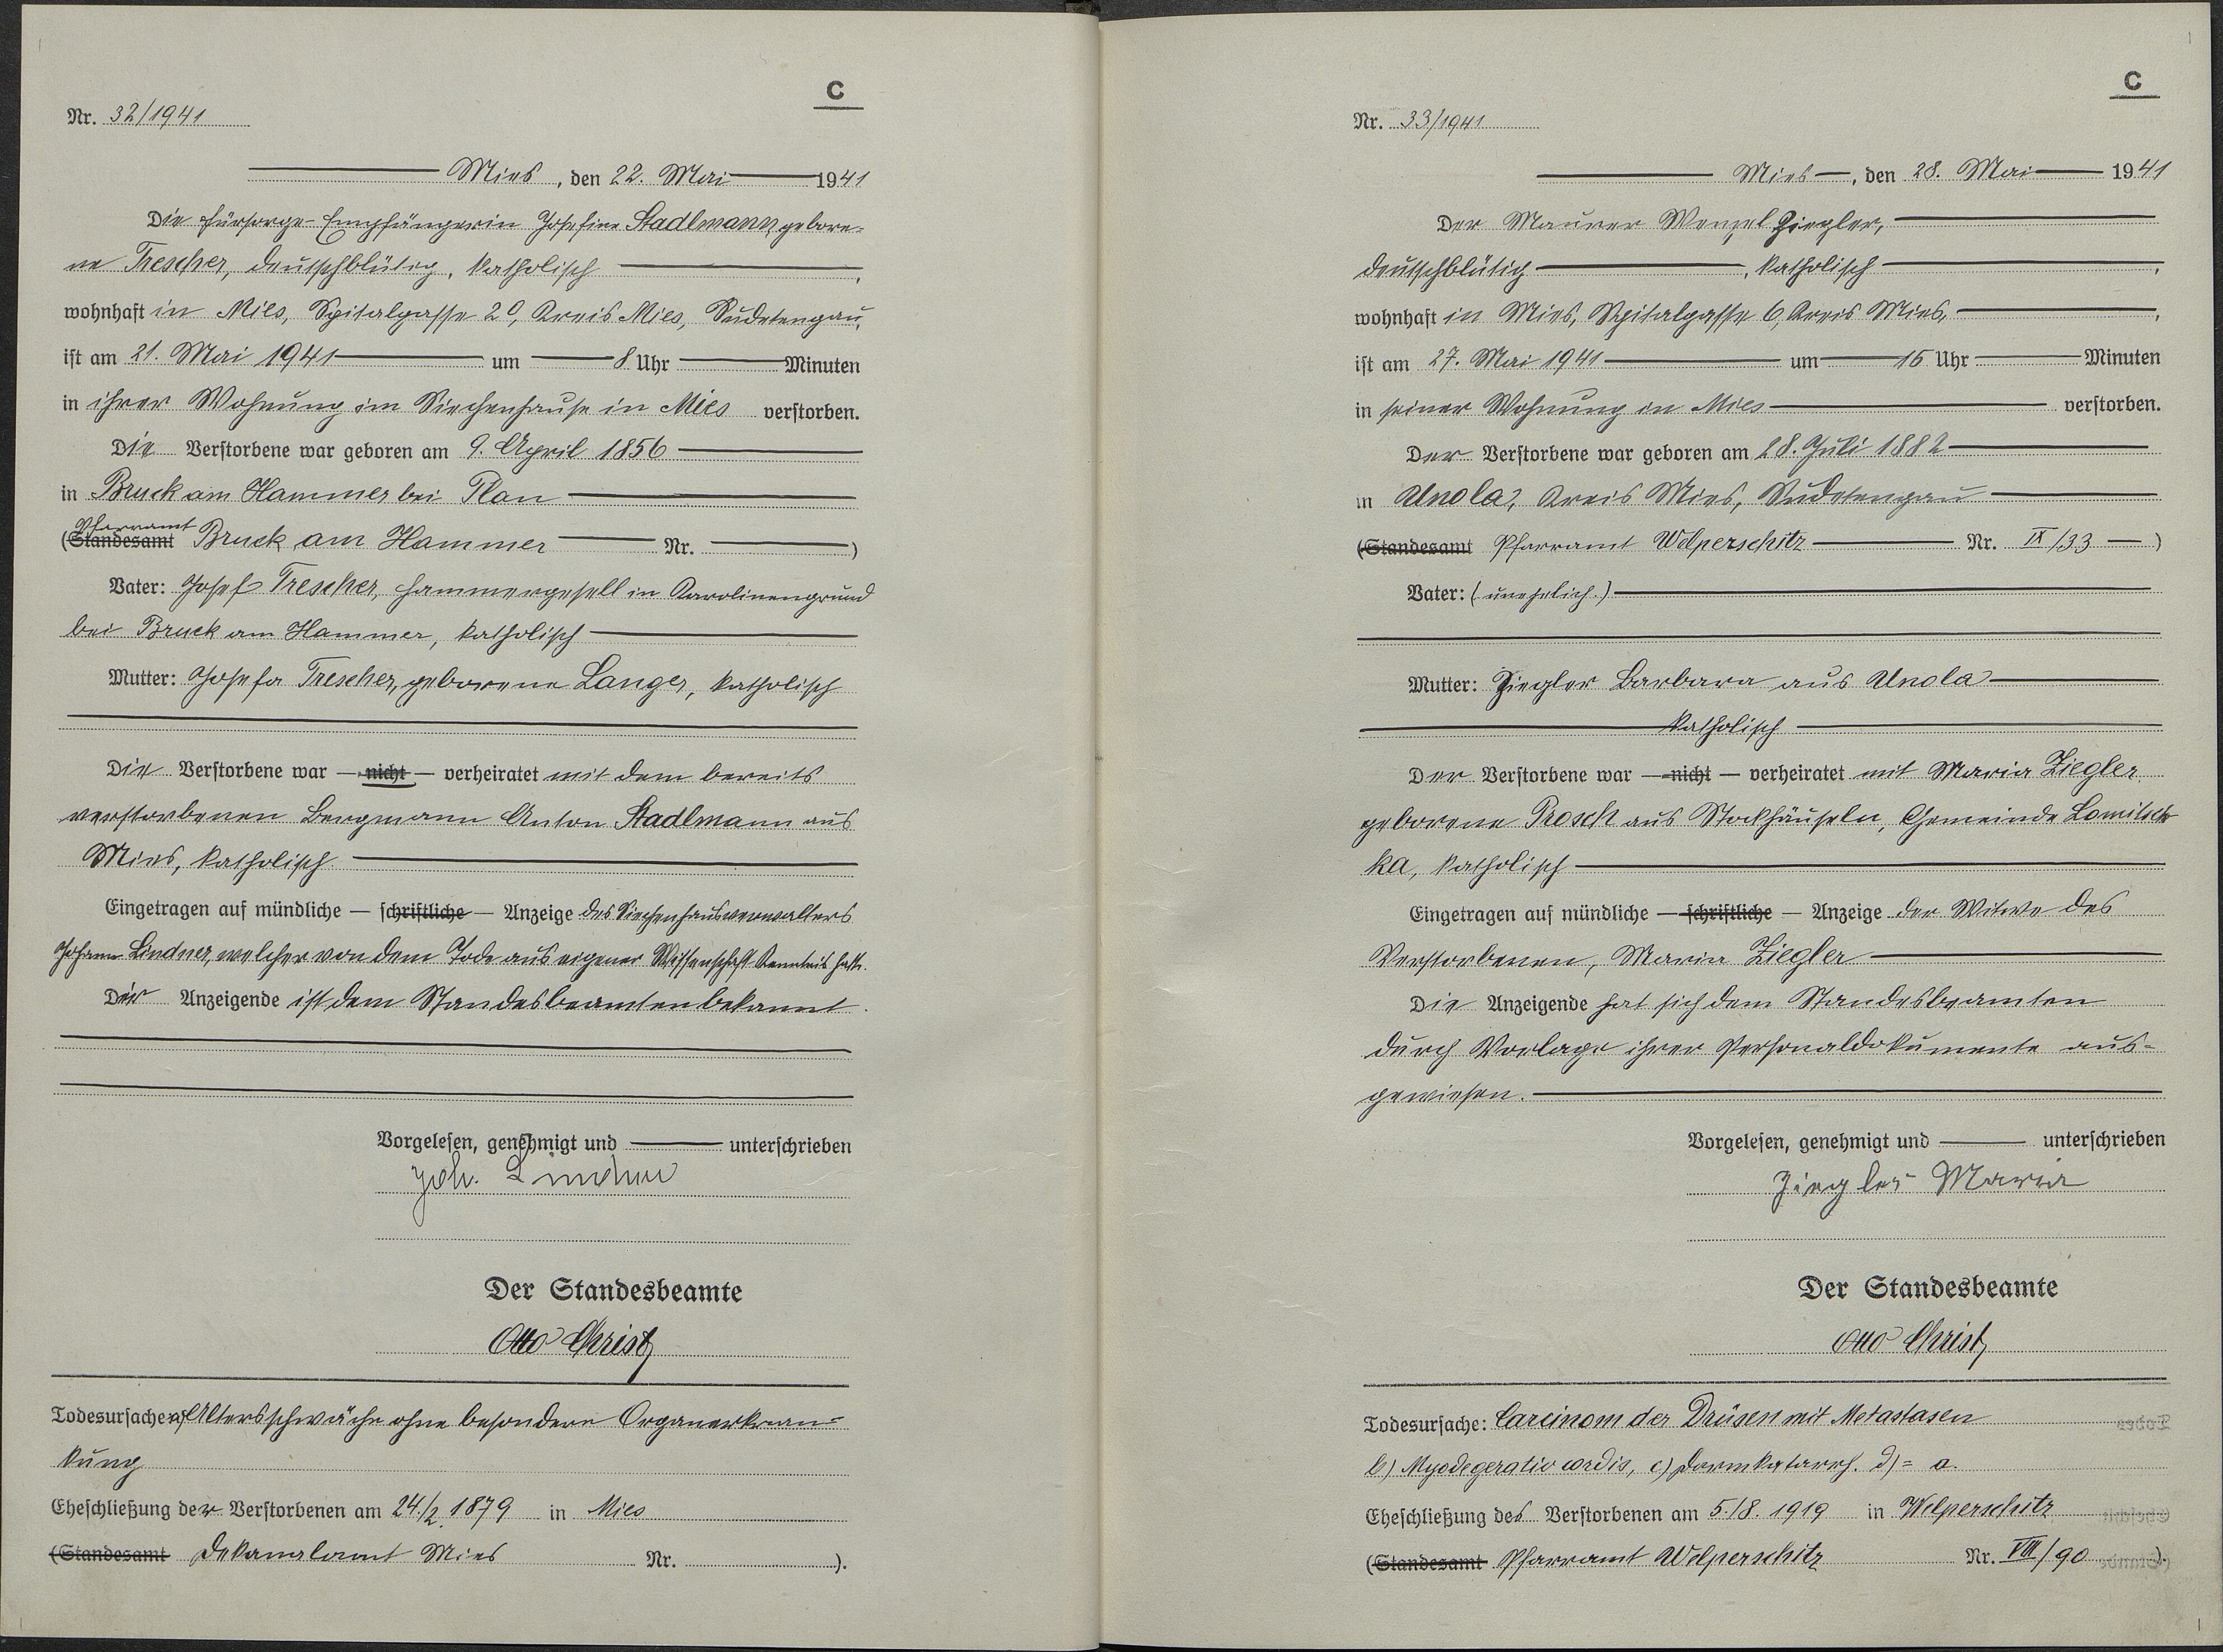 C
Nr. 32/1941
Mies, den 22. Mai 1941
Die Fürsorge-Empfängerin Josefine Stadlmann, gebore-
ne Trescher, deutschblütig, katholisch,
wohnhaft in Mies, Spitalgasse 20, Kreis Mies, Sudetengau,
ist am 21. Mai 1941 um 8 Uhr Minuten
in ihrer Wohnung im Siechenhause in Mies verstorben.
Die Verstorbene war geboren am 9. April 1856
in Bruck am Hammer bei Plan
Pfarramt
(Standesamt Bruck am Hammer Nr. )
Vater: Josef Trescher, Hammergesell in Karolinengrund
bei Bruck am Hammer, katholisch
Mutter: Josefa Trescher, geborene Langer, katholisch
Die Verstorbene war — nicht — verheiratet mit dem bereits
verstorbenen Bergmann Anton Stadlmann aus
Mies, katholisch.
Eingetragen auf mündliche — schriftliche — Anzeige des Siechenhausverwalters
Johann Lindner, welcher von dem Tode aus eigener Wissenschaft Kenntnis hatte.
Der Anzeigende ist dem Standesbeamten bekannt.
Vorgelesen, genehmigt und unterschrieben
Joh. Lindner
Der Standesbeamte
Otto Christ
Todesursache: a) Altersschwäche ohne besondere Organerkran-
kung
Eheschließung der Verstorbenen am 24./2. 1879 in Mies
(Standesamt Dekanalamt Mies Nr. ).
C
Nr. 33/1941
Mies, den 28. Mai 1941
Der Maurer Wenzel Ziegler,
deutschblütig, katholisch,
wohnhaft in Mies, Spitalgasse 6, Kreis Mies,
ist am 27. Mai 1941 um 15 Uhr Minuten
in seiner Wohnung in Mies verstorben.
Der Verstorbene war geboren am 28. Juli 1882
in Unola, Kreis Mies, Sudetengau
(Standesamt Pfarramt Welperschitz Nr. IX/33 )
Vater: (unehelich.)
Mutter: Ziegler Barbara aus Unola
katholisch
Der Verstorbene war — nicht — verheiratet mit Maria Ziegler
geborene Prosch aus Stockhäuseln, Gemeinde Lomitsch-
ka, katholisch
Eingetragen auf mündliche — schriftliche — Anzeige der Witwe des
Verstorbenen, Maria Ziegler
Die Anzeigende hat sich dem Standesbeamten
durch Vorlage ihrer Personaldokumente aus-
gewiesen.
Vorgelesen, genehmigt und unterschrieben
Ziegler Maria
Der Standesbeamte
Otto Christ
Todesursache: Carcinom der Drüsen mit Metastasen
b) Myodegeratio cordis, c) Darmkatarrh. d) = a.
Eheschließung des Verstorbenen am 5./8. 1919 in Welperschitz
(Standesamt Pfarramt Welperschitz Nr. VIII/90 ).